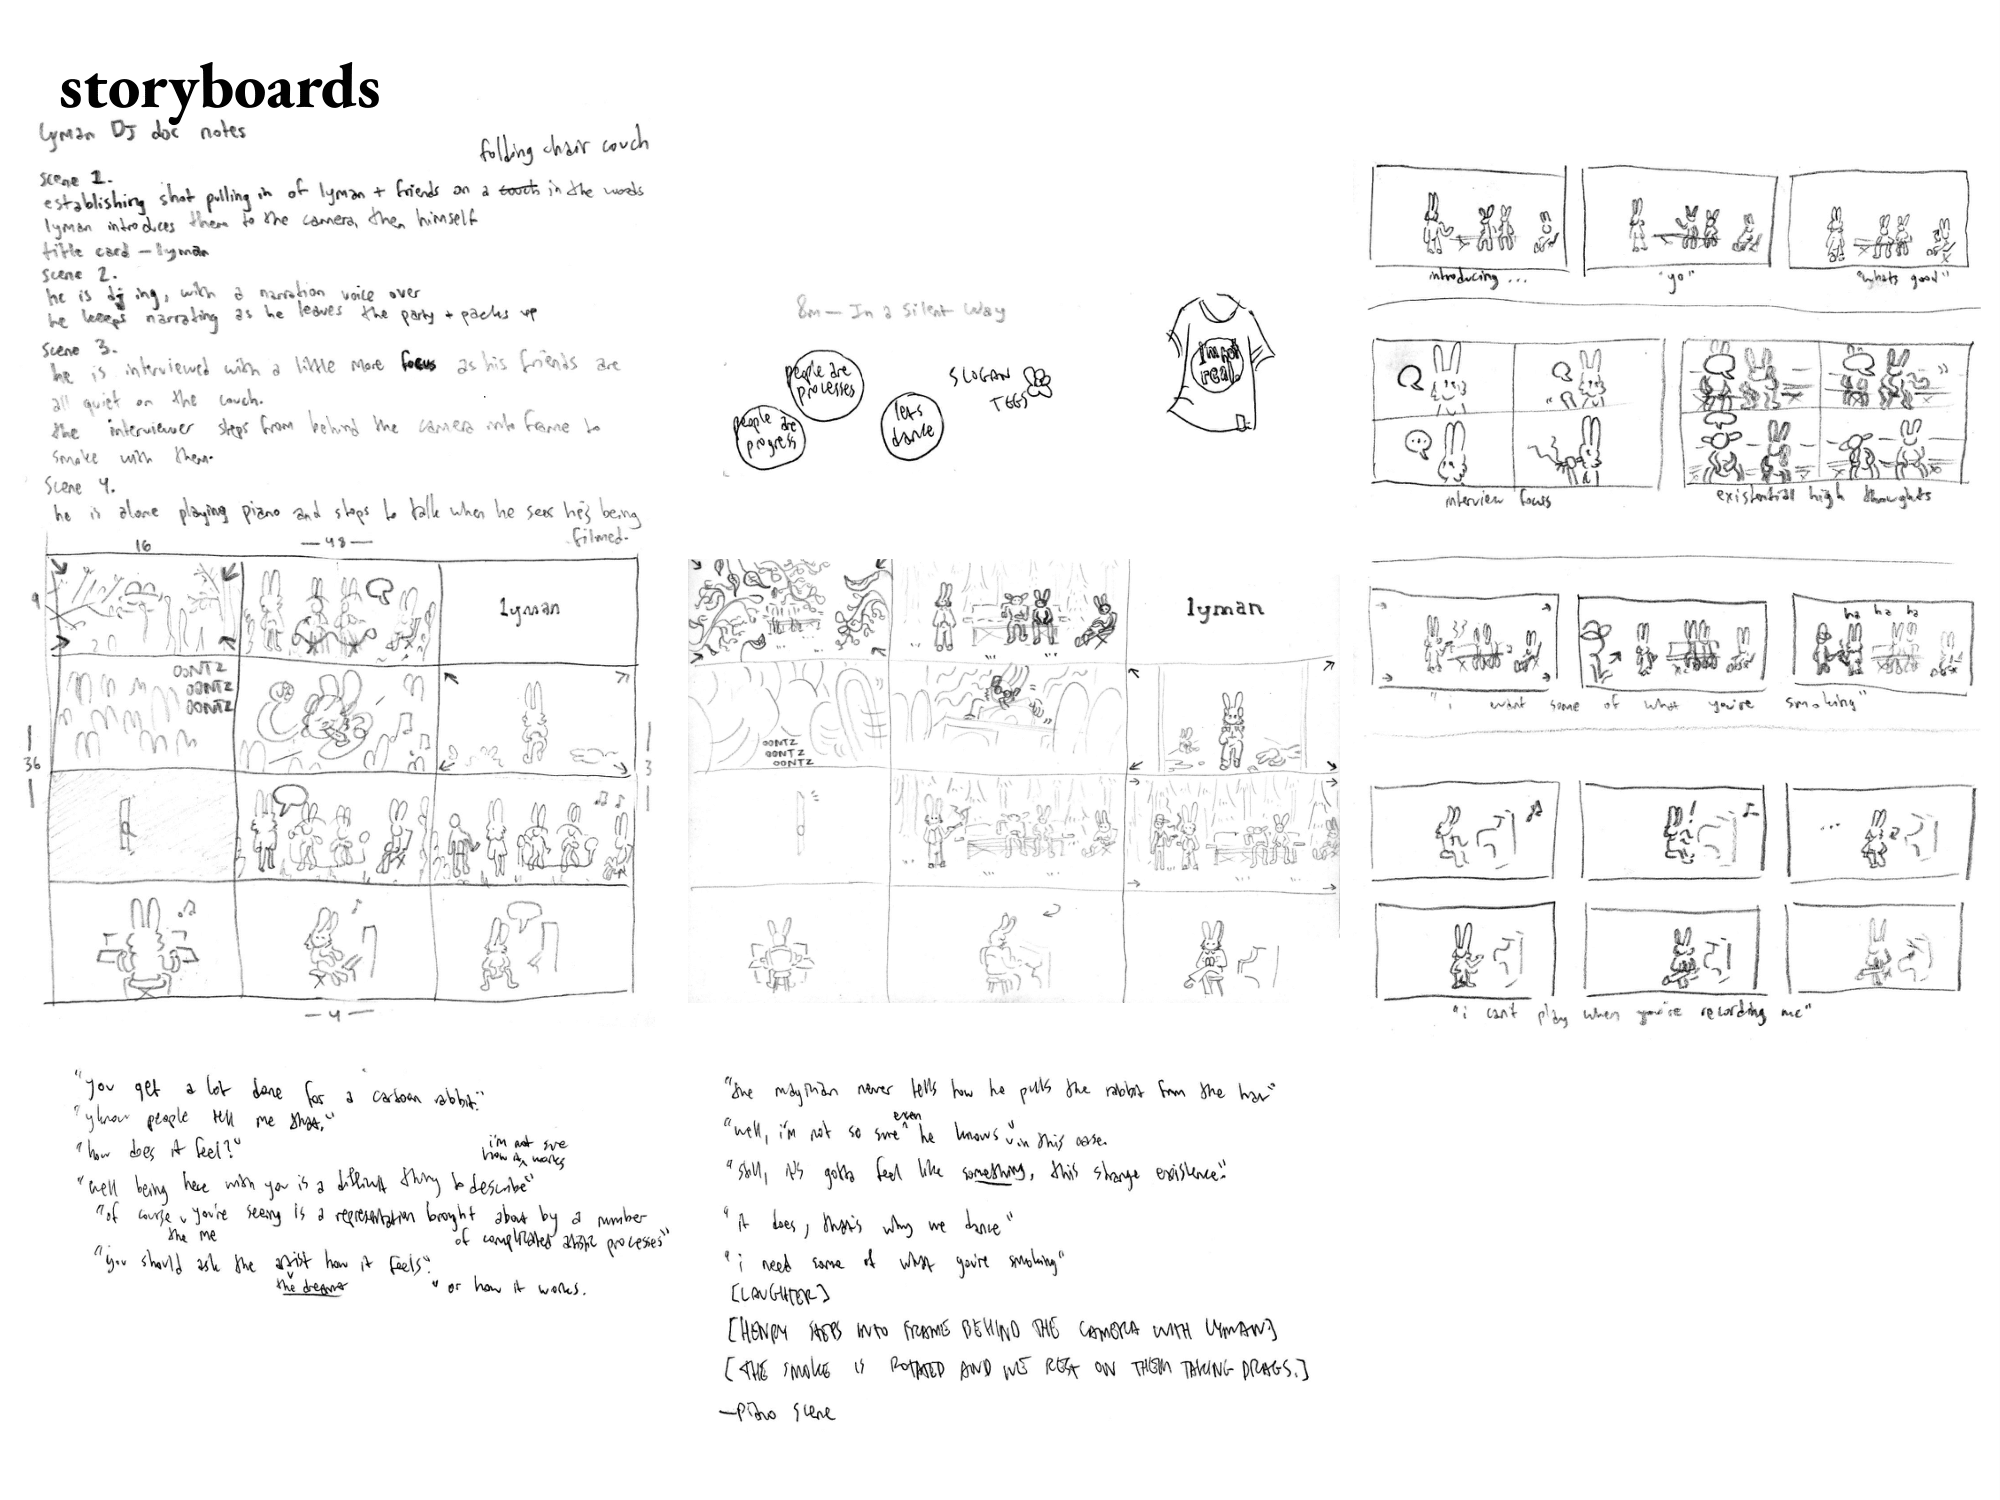 storyboards
lyman DJ doc notes
folding chair couch
scene 1.
establishing shot pulling in of lyman + friends on a couch in the woods
lyman introduces them to the camera, then himself
title card — lyman
scene 2.
he is dj ing, with a narration voice over
he keeps narrating as he leaves the party + packs up
Scene 3.
he is interviewed with a little more focus as his friends are
all quiet on the couch.
the interviewer steps from behind the camera into frame to
smoke with them.
Scene 4.
he is alone playing piano and stops to talk when he sees he's being
filmed.
16
— 48 —
9
lyman
OONTZ
OONTZ
OONTZ
36
3
— 4 —
"you get a lot done for a cartoon rabbit."
"yknow people tell me that."
"how does it feel?"
i'm not sure
how it works
"well being here with you is a difficult thing to describe"
"of course, you're seeing is a representation brought about by a number
the me
of complicated artistic processes"
"you should ask the artist how it feels."
the dreamer
"or how it works.
8m — In a Silent Way
people are
processes
people are
progress
lets
dance
SLOGAN
TEES
I'm not
real.
lyman
OONTZ
OONTZ
OONTZ
"the magician never tells how he pulls the rabbit from the hat"
even
"well, i'm not so sure he knows" in this case.
"still, it's gotta feel like something, this strange existence."
"it does, that's why we dance"
"i need some of what you're smoking"
[LAUGHTER]
[HENRY STEPS INTO FRAME BEHIND THE CAMERA WITH LYMAN.]
[THE SMOKE IS ROTATED AND WE REST ON THEM TAKING DRAGS.]
—piano scene
introducing ...
"yo"
"whats good"
interview focus
existential high thoughts
ha ha ha
"i want some of what you're smoking"
!
...
"i can't play when you're recording me"